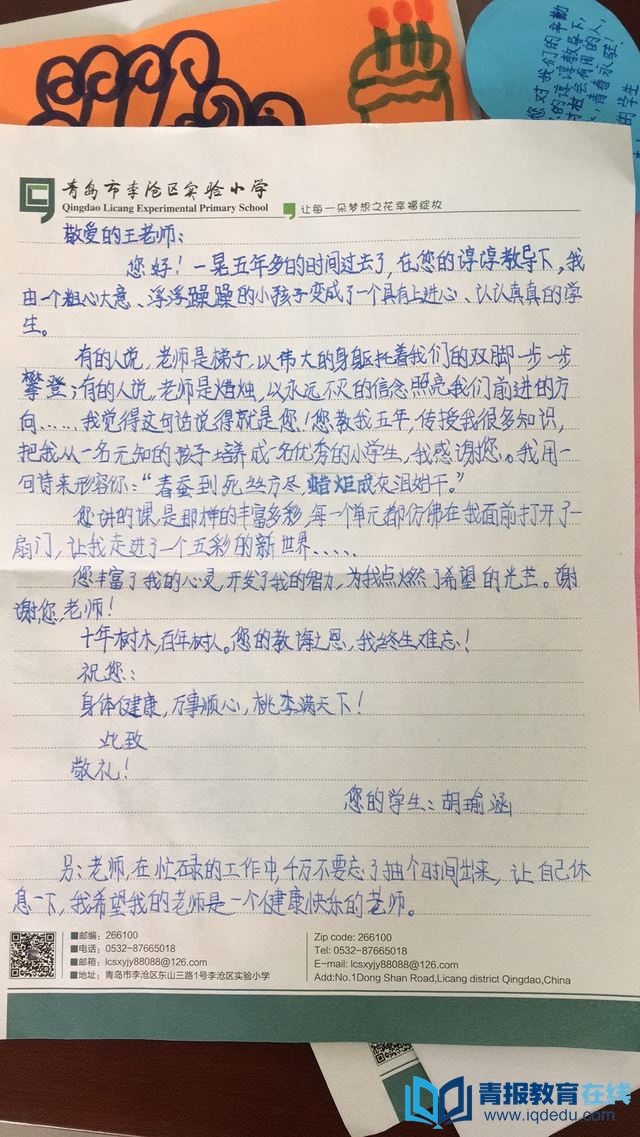 您对我们的辛勤
的谆谆教导下,
时被会有用的人,
,青春永驻!
的学生
青岛市李沧区实验小学
Qingdao Licang Experimental Primary School
让每一朵梦想之花幸福绽放
敬爱的王老师:
您好!一晃五年多的时间过去了,在您的谆谆教导下,我
由一个粗心大意、浮浮躁躁的小孩子变成了一个具有上进心、认认真真的学
生。
有的人说,老师是梯子,以伟大的身躯托着我们的双脚一步一步
攀登;有的人说,老师是蜡烛,以永远不灭的信念照亮我们前进的方
向……我觉得这句话说得就是您!您教我五年,传授我很多知识,
把我从一名无知的孩子培养成一名优秀的小学生,我感谢您。我用一
句诗来形容你:“春蚕到死丝方尽,蜡炬成灰泪始干。”
您讲的课是那样的丰富多彩,每一个单元都仿佛在我面前打开了一
扇门,让我走进了一个五彩的新世界……
您丰富了我的心灵,开发了我的智力,为我点燃了希望的光芒。谢
谢您,老师!
十年树木,百年树人。您的教诲之恩,我终生难忘!
祝您:
身体健康,万事顺心,桃李满天下!
此致
敬礼!
您的学生:胡瑜涵
另:老师,在忙碌的工作中,千万不要忘了抽个时间出来,让自己休
息一下,我希望我的老师是一个健康快乐的老师。
邮编:266100
电话:0532-87665018
邮箱:lcsxyjy88088@126.com
地址:青岛市李沧区东山三路1号李沧区实验小学
Zip code: 266100
Tel: 0532-87665018
E-mail: lcsxyjy88088@126.com
Add:No.1Dong Shan Road,Licang district Qingdao,China
青报教育在线
www.iqdedu.com